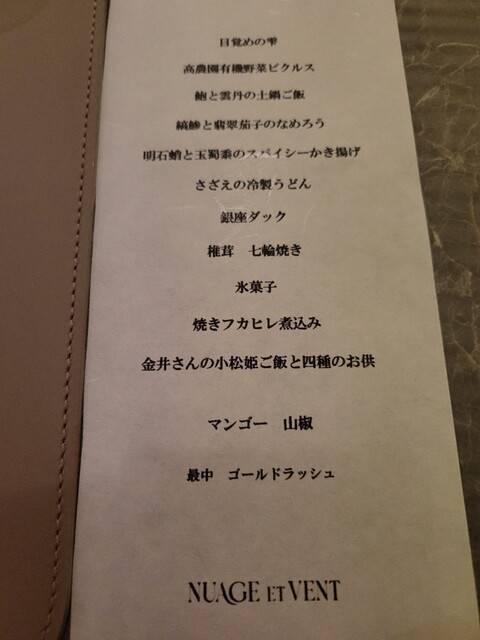 目覚めの雫
高農園有機野菜ピクルス
鮑と雲丹の土鍋ご飯
縞鯵と翡翠茄子のなめろう
明石蛸と玉蜀黍のスパイシーかき揚げ
さざえの冷製うどん
銀座ダック
椎茸　七輪焼き
氷菓子
焼きフカヒレ煮込み
金井さんの小松姫ご飯と四種のお供
マンゴー　山椒
最中　ゴールドラッシュ
NUAGE ET VENT